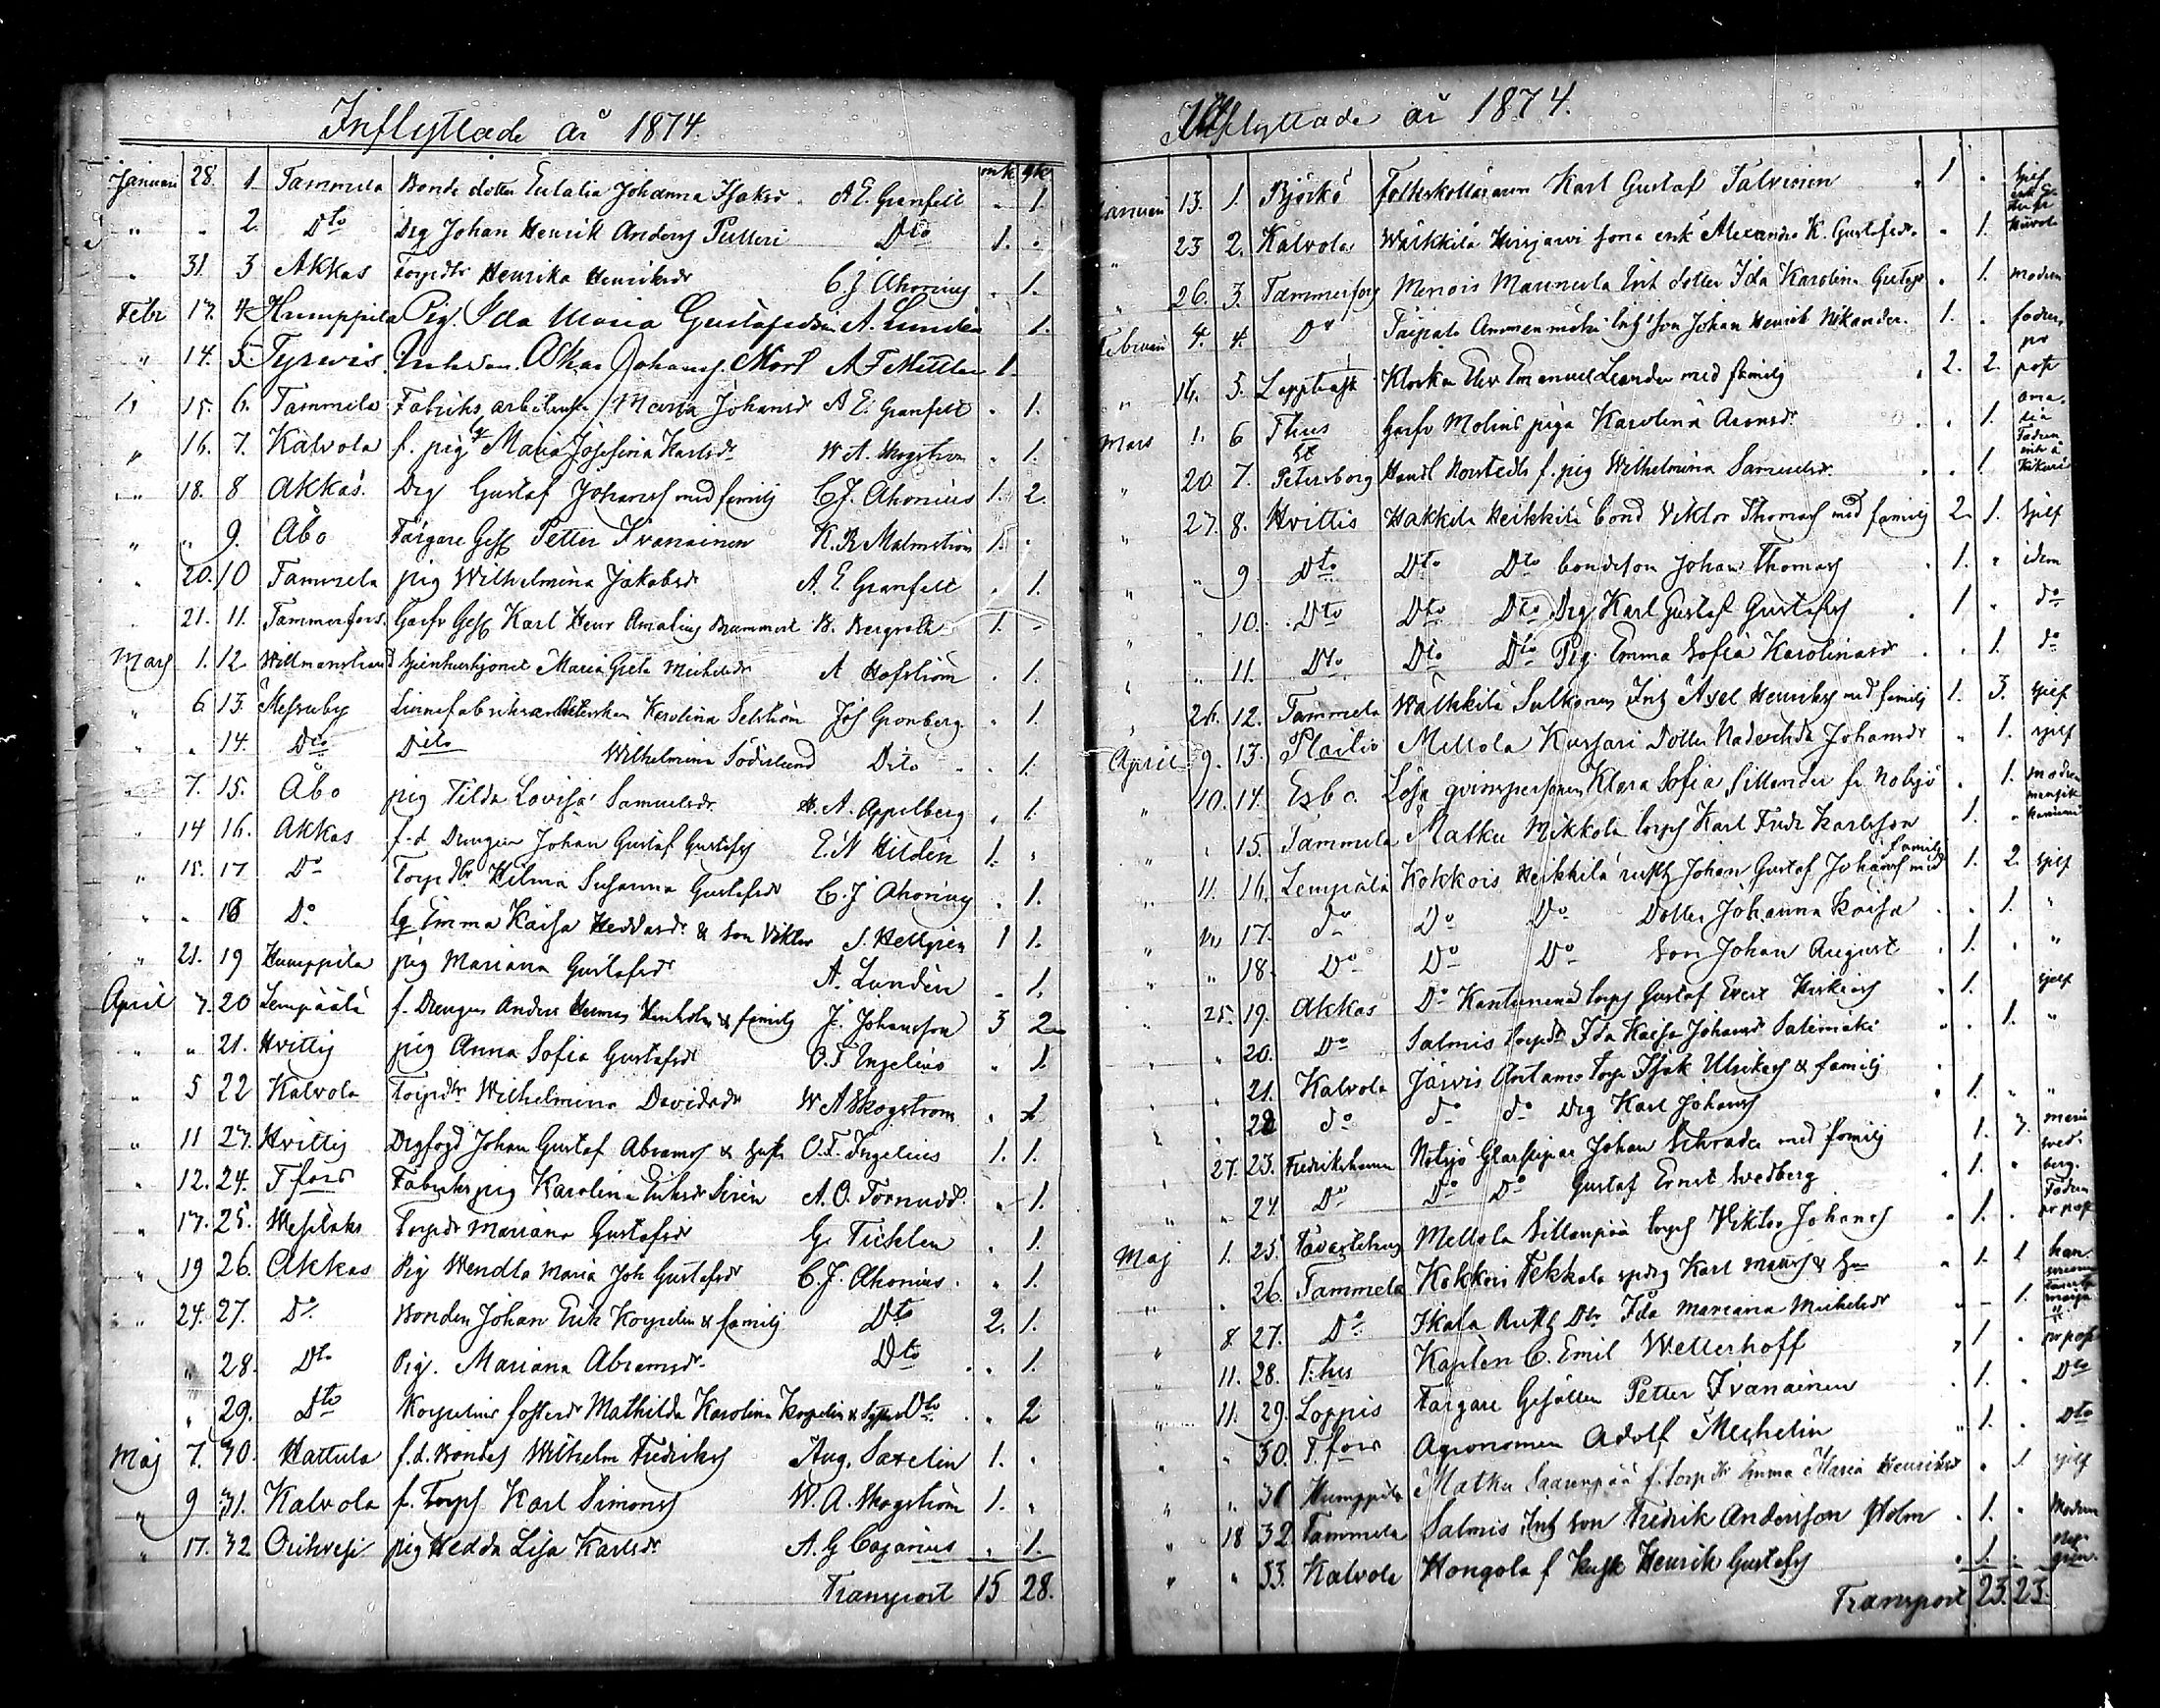 Inflyttade år 1874.
mk qk
Januari 28. 1. Tammela Bonde dotter Eulalia Johanna Isaksd. A E. Granfelt . 1.
" " 2. Dto Drg Johan Henrik Anders Putteri Dto 1. .
" 31. 3 Akkas Torpdtr Henrika Henriksdr C. J Ahonius . 1.
Febr 17. 4 Humppila Pig. Ida Maria Gustafsdtr A. Lundén 1.
" 14. 5 Tyrwis Oskar Johans. A F Mittler 1.
" 15. 6. Tammela Fabriks arbeterskn Maria Johansdr A E. Granfelt . 1.
" 16. 7. Kalvola f. pig Maria Josefina Karlsdr W A. Skogström . 1.
" 18. 8 Akkas. Drg Gustaf Johans med familj C. J. Ahonius 1. 2.
" " 9. Åbo Färgare Ges. Petter Ivanainen K. R Malmström 1. .
" 20. 10 Tammela pig Wilhelmina Jakobsdr A. E. Granfelt . 1.
" 21. 11. Tammerfors. Garfv Ges. Karl Henr Amalius Brummert B. Bergroth 1. -
Mars 1. 12 Willmanstrand Maria Greta Michelsdr A Hofström . 1.
" 6 13. Messuby Linnefabriksarbeterskan Karolina Selström Jos Gronberg . 1.
" " 14. Dto Dito Wilhelmina Söderlund Dito . 1.
" 7. 15. Åbo pig Tilda Lovisa Samuelsdr. A. Appelberg . 1.
" 14 16. Akkas f.d Drengen Johan Gustaf Gustafs E. N Hildén 1. "
" 15. 17 Do Torpdtr Hilma Susanna Gustafsdr C. J Ahonius . 1.
" " 18 Do Emma Kaisa Heddasdr & son Viktor J. Hellgren 1 1.
" 21. 19 Humppila pig Mariana Gustafsdr A. Lundén . 1.
April 7. 20 Lempäälä f. Drengen Anders & familj J. Johansson 3 2
" " 21. Hvittis pig Anna Sofia Gustafsdr O. F Ingelius " 1.
" 5 22 Kalvola Torpdtr Wilhelmina Davidsdr W A Skogström . 1
" 11 23. Hvittis Drgfogd Johan Gustaf Abrams & hust O. F. Ingelius 1. 1.
" 12. 24. Tfors Fabriks pig Karolina Eriksdr Sirén A. O. Tornudd. " 1.
" 17. 25. Wesilaks Torpdr Mariana Gustafsdr G. Ticklén . 1.
" 19 26. Akkas Pig Wendla Maria Joh Gustafsdr C. J. Ahonius. " 1.
" 24. 27. Do. Bonden Johan Erik Korpelin & familj Dto 2. 1.
" 28. Dto Pig. Mariana Abramsdr. Dto . 1.
" 29. Dto Korpelins fosterdr Mathilda Karolina Korpelin & Dto . 2
Maj 7. 30. Hattula f.d. Bondes Wilhelm Fredriks Aug. Saxelin 1. .
" 9 31. Kalvola f. Torps Karl Simons W. A. Skogström 1. .
" 17. 32 Orihvesi pig Hedda Lisa Karlsdr A. G Cajanus . 1.
Transport 15 28.
Utflyttade år 1874.
Januari 13. 1. Björkö Folkskolläraren Karl Gustaf Talvioinen 1 . sjelf
" 23 2. Kalvola Wälkkilä Hirsjärvi Alexandra K. Gustafsdr . 1.
" 26. 3. Tammerfors Menois Mannerla Inh dotter Ida Karolina Gustafs . 1. modren
Februari 4. 4. Do Taipale Ammenmäki Inh son Johan Henrik Nikander. 1. . fadren
" 16. 5. Lapptrask Klockar Elev Emanuel Leander med familj 2. 2. pr post
Mars 1. 6 T.hus Garfv Molins piga Karolina Aronsdr . 1.
" 20 7. St Petersborg Handl Norstedts f. pig Wilhelmina Samuelsdr. . 1
" 27. 8. Hvittis Hakkila Heikkilä bond Viktor Thomas med familj 2. 1. sjelf
" " 9 Dto Dto Dto bondeson Johan Thomas 1. . idem
" " 10. Dto Dto Dto Drg Karl Gustaf Gustafss 1 . do
" " 11. Dto Dto Dto Pig Emma Sofia Karolinasdr . 1. do
" 26. 12. Tammela Wälkkilä Sulkonen Inh Axel Henriks med familj 1. 3. sjelf
April 9. 13. Mellola Kussari Dotter Nadeschda Johansdr . 1. sjelf
" 10. 14. Esbo. Lösa qvinspersonen Klara Sofia Sillander fr Notsjö . 1. modren
" " 15. Tammela Matku Mikkola torps Karl Fredr Karlsson 1. "
" 11. 16. Lempäla Kokkois Heikkilä rusth Johan Gustaf Johans med familj 1. 2. sjelf
" " 17. do Do Do Dotter Johanna Kaisa . 1. "
" " 18. Do Do Do Son Johan August 1. . "
" 25. 19. Akkas Do Kantunen torps Gustaf Evert Heikkas 1. sjelf
" " 20. Do Salmis torpdr Ida Kaisa Johansdr Salemäki . 1. "
" " 21. Kalvola Järvis Antamo torp Isak Ulrikas & familj
" " 22 do do do Drg Karl Johans 1. " "
" 27. 23. Fredrikshamn Notsjö Glasslipar Johan Schrader med familj 1. 7.
" " 24 Do Do Do Gustaf Ernst Svedberg 1. "
Maj 1. 25. Tavastehus Mellola Sillanpää torps Viktor Johans 1. . pr post
" " 26. Tammela Kokkois Pekkola Karl Matts & hu 1. 1
" 8 27. Do Ikala Rusth Dtr Ida Mariana Michelsdr - 1.
" 11. 28. T.hus Kapten C. Emil Wetterhoff 1 . pr post
" 11. 29. Loppis Färgare Gesällen Petter Ivanainen 1. . Dto
" " 30. Tfors Agronomen Adolf Mechelin 1. . Dto
" " 31 Humppila Matku Saarenpää f. torpdtr Emma Maria Henriksdr . 1 sjelf
" 18 32 Tammela Salmis Inh son Fredrik Andersson Holm 1. . Modren
" " 33. Kalvola Hongola f Kusk Henrik Gustafs 1. .
Transport 23. 23.